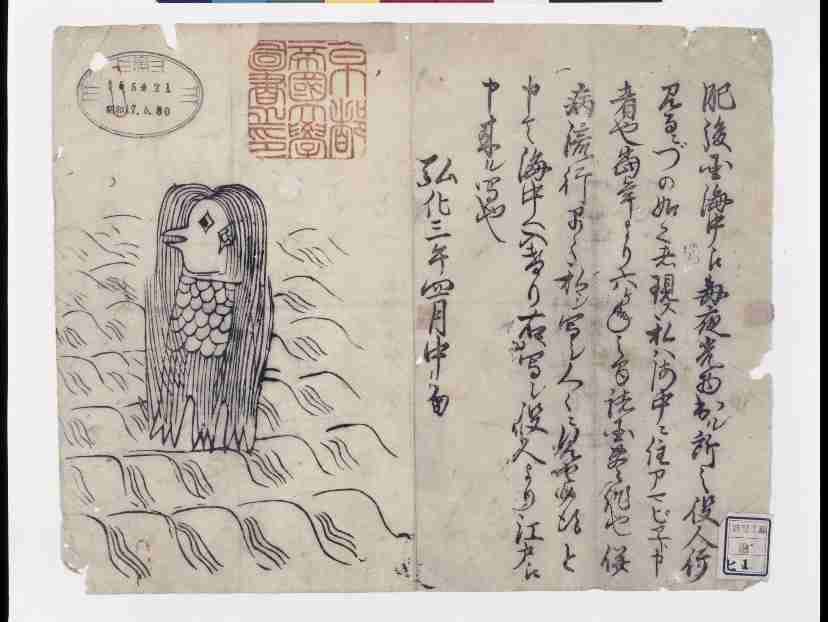 肥後国海中え毎夜光物出ル所之役人行
見るニづの如く者現ス私ハ海中ニ住アマビヱト申
者也当年より六ケ年之間諸国豊作也併
病流行早々私シ写シ人々ニ見セ候得と
申て海中へ入けり右写シ役人より江戸え
申来ル写也
弘化三年四月中旬
京都
帝國大學
圖書之印
昭和17.5.30
ヒ 1